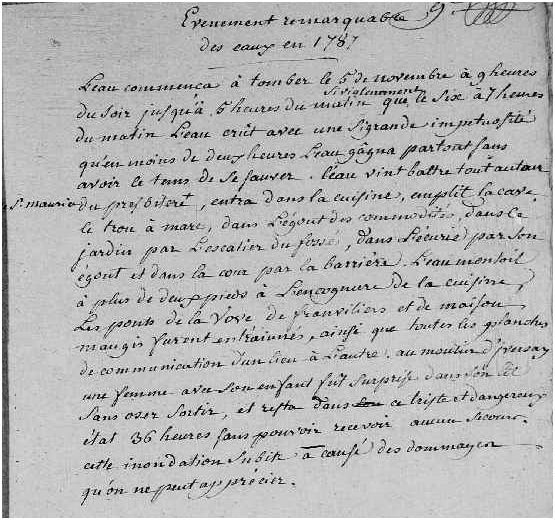 Evenement remarquable
des eaux en 1787
Leau commenca à tomber le 5 de novembre à 9 heures
du soir jusqu'à 5 heures du matin si violemment que le six à 7 heures
du matin Leau crût avec une sigrande impetuosité
qu'en moins de deux heures Leau gâgna partout sans
avoir le tems de se sauver. Leau vint battre tout autour
St maurice du presbiteré, entra dans la cuisine, emplit la cave
le trou à marc, dans L'égout des commodités, dans le
jardin par L'escalier du fossé, dans L'écurie par son
égout et dans la cour par la barrière. L'eau montoit
à plus de deux pieds à L'encognure de la cuisine,
Les ponts de la voye de franviliers et de maison
maugis furent entrainnés, ainsé que toutes les planches
de communication d'un lieu à L'autre. au moulin d'yversay
une femme avec son enfant fût surprise dans son lit
sans oser sortir, et resta dans ce triste et dangereux
état 36 heures sans pouvoir recevoir aucun secours.
cette inondation subite à causé des dommages
qu'on ne peut apprécier.